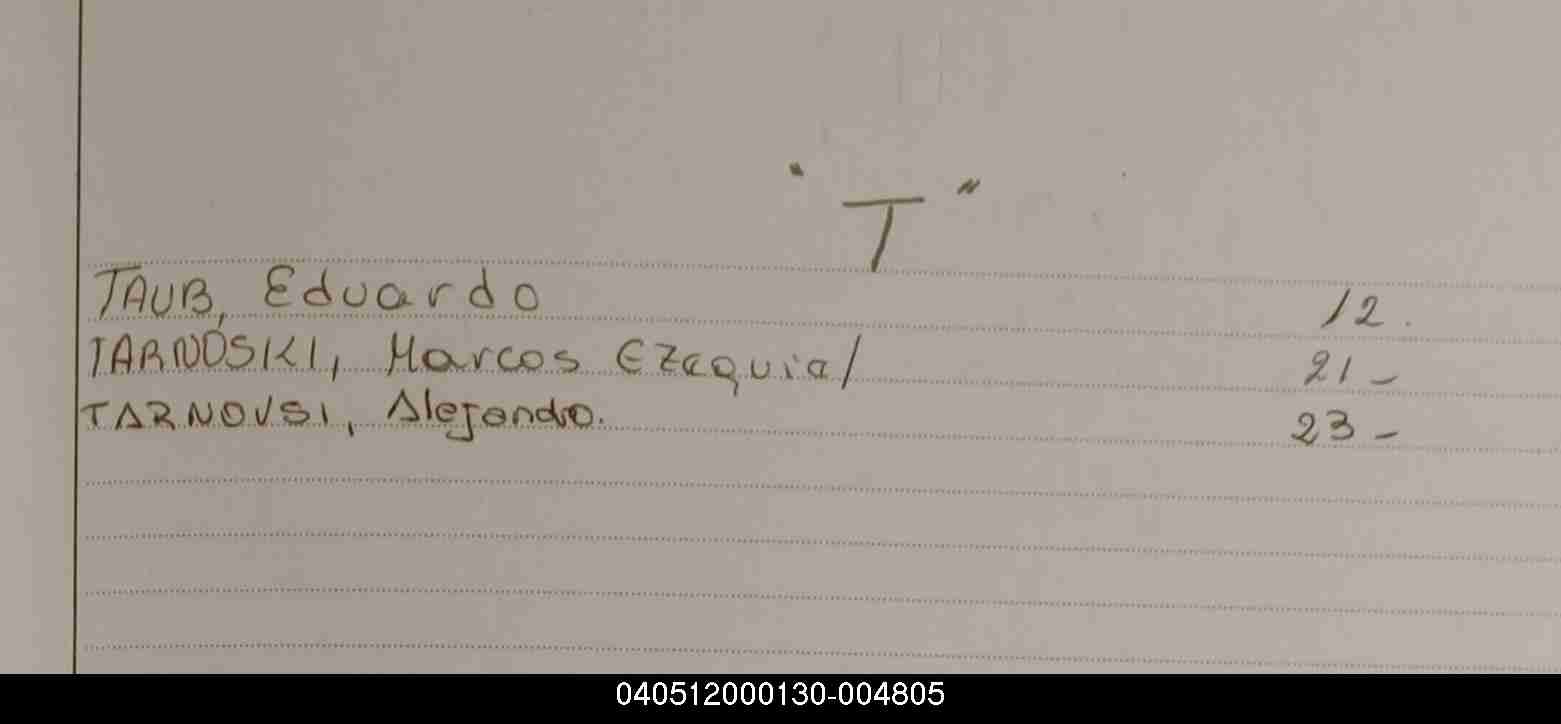 "T"
TAUB, Eduardo 12.
TARNÓSKI, Marcos Ezequiel 21-
TARNOVSI, Alejandro. 23-
040512000130-004805